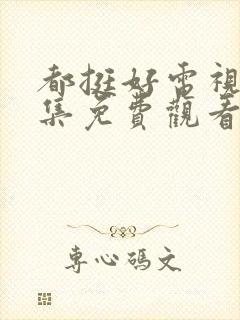 都挺好電視
集免費觀看
專心碼文